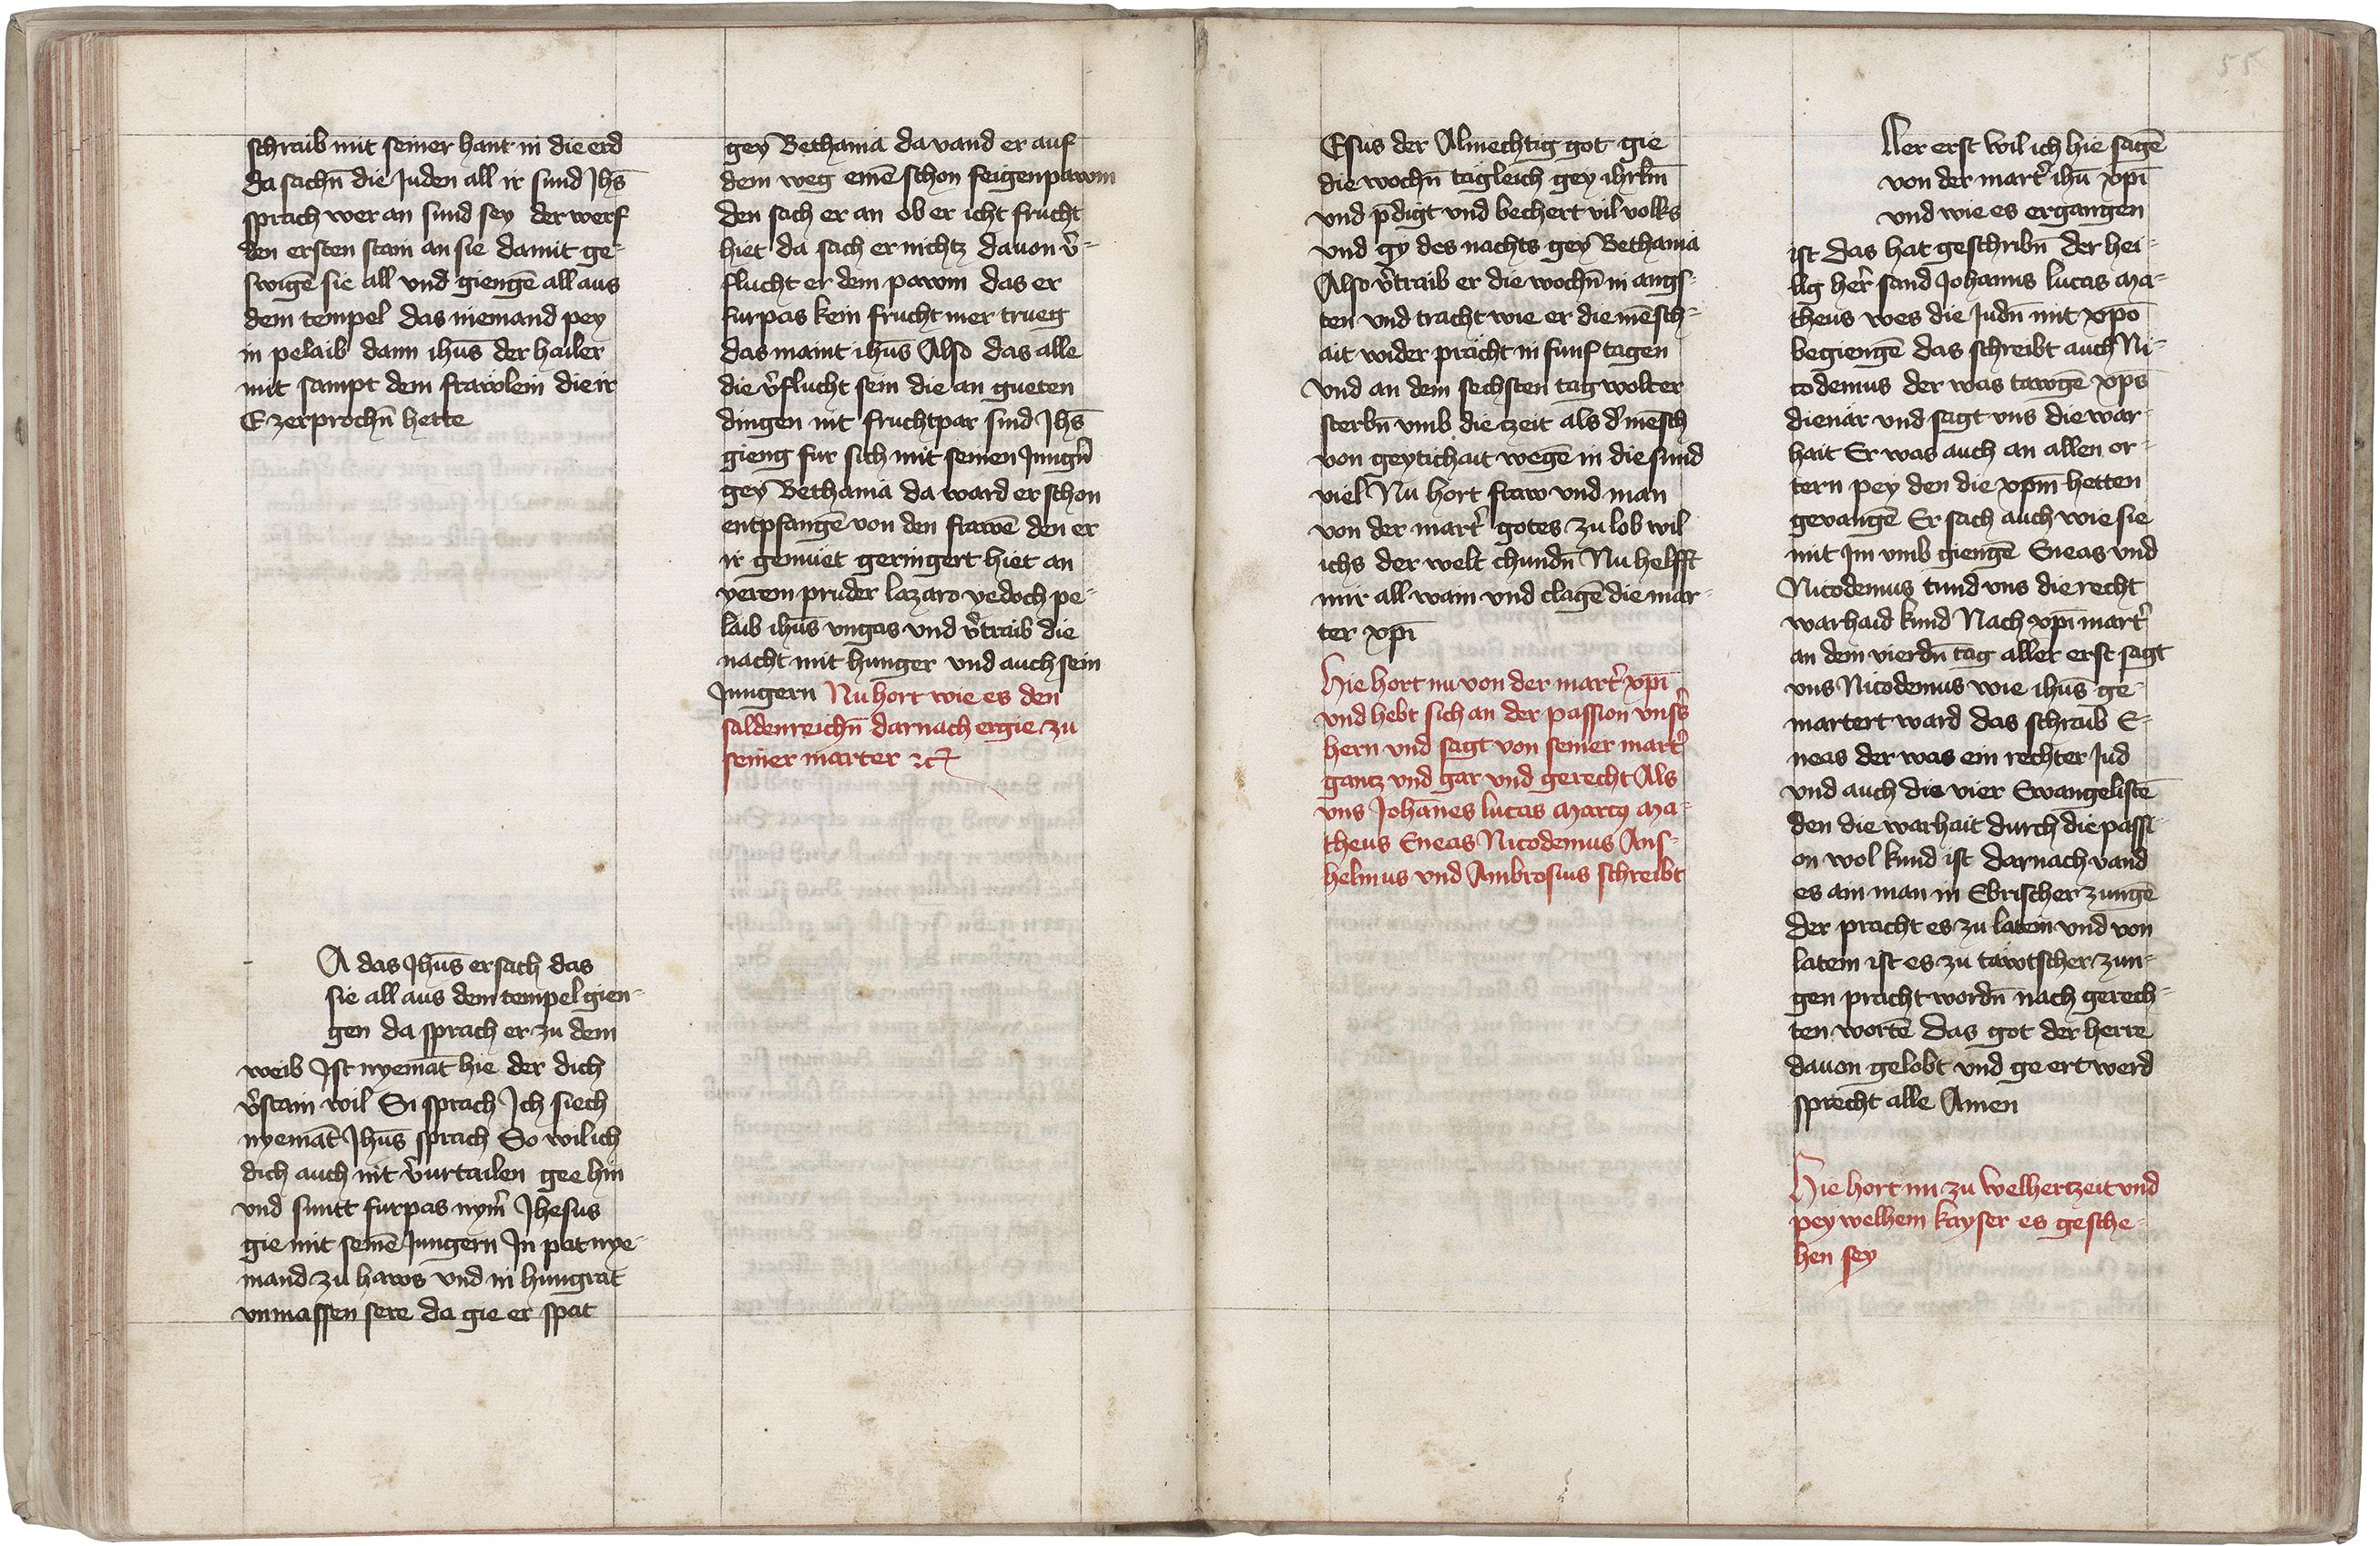 schraib mit seiner hant in die erd
da sachn̄ die Juden all ir sund Jhs̄
sprach wer an sund sey der werf
den ersten stain an sie damit ge-
swigē sie all vnd giengē all aus
dem tempel das niemand pey
in pelaib dann ihūs der hailer
mit sampt dem frawlein die ir
E zerprochn̄ hette
A das Jhūs ersach das
sie all aus dem tempel gien-
gen da sprach er zu dem
weib Ist nyemāt hie der dich
v̉stain wil Si sprach Ich siech
nyemāt Jhūs sprach So wil ich
dich auch nit v̉urtailen gee hin
vnd suntt furpas nym̉ Jhesus
gie mit seinē Jungern In pat nye-
mand zu haws vnd in hungrat
vnmassen sere da gie er spat
gey Bethania da vand er auf
dem weg einē schon feigenpawm
den sach er an ob er icht frucht
hiet da sach er nichtz dauon v̉-
flucht er dem pawm das er
furpas kein frucht mer trueg
das maint ihūs Also das alle
die v̉flucht sein die an gueten
dingen nit fruchtpar sind Jhs̄
gieng fur sich mit seinen Jungn̉
gey Bethania da ward er schon
entpfangē von den frawē den er
ir gemuet geringert hiet an
yerem pruder lazaro yedoch pe-
laib ihūs vngas vnd v̉traib die
nacht mit hunger vnd auch sein
Jungern Nu hort wie es den
saldenreichn̄ darnach ergie zu
seiner marter ꝛc̄
Esus der Almechtig got gie
die wochn̄ tägleich gey ihrlm̄
vnd p̄digt vnd bechert vil volks
vnd gy des nachts gey Bethania
Also v̉traib er die wochn̄ in angs-
ten vnd tracht wie er die mēsch-
ait wider prächt in funf tagen
vnd an dem sechsten tag wolt er
sterbn̄ vmb die tzeit als d̉ mēsch
von geytichait wegē in die sund
viel Nu hort fraw vnd man
von der mart̉ gotes zu lob wil
ichs der welt chundn̄ Nu helfft
mir all wain vnd clagē die mar-
ter xpī
Hie hort nu von der mart̉ xpī
vnd hebt sich an der passion vns̉s
hern vnd sagt von seiner mart̉
gantz vnd gar vnd gerecht Als
vns Johānes lucas marcꝰ ma-
theus Eneas Nicodemus Ans-
helmus vnd Ambrosius schreibt
Ller erst wil ich hie sagē
von der mart̉ ihū xpī
vnd wie es ergangen
ist das hat geschribn̄ der hei-
lig her̉ sand Johanns lucas ma-
theus wes die Judn̄ mit xpō
begiengē das schreibt auch Ni-
codemus der was tawgē xps̄
dienär vnd sagt vns die war-
hait Er was auch an allen or-
tern pey den die xpm̄ hetten
gevangē Er sach auch wie sie
mit Im vmb giengē Eneas vnd
Nicodemus tund vns die recht
warhaid kund Nach xpī mart̉
an dem vierdn̄ tag aller erst sagt
vns Nicodemus wie ihūs ge-
martert ward das schraib E-
neas der was ein rechter Jud
vnd auch die vier Ewangelistē
den die warhait durch die passi-
on wol kund ist darnach vand
es ain man in Ebrischer zungē
der pracht es zu latein vnd von
latein ist es zu tawtscher zun-
gen pracht wordn̄ nach gerech-
ten wortē das got der herre
dauon gelobt vnd ge ert werd
sprecht alle Amen
Hie hort nu zu welher tzeit vnd
pey welhem kayser es gesche-
hen sey
55